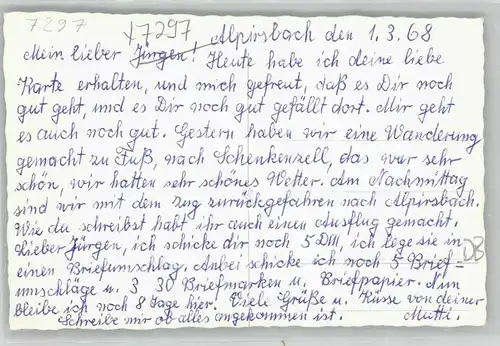 7297
+7297 Alpirsbach den 1.3.68
Mein lieber Jürgen! Heute habe ich deine liebe
Karte erhalten, und mich gefreut, daß es Dir noch
gut geht, und es Dir noch gut gefällt dort. Mir geht
es auch noch gut. Gestern haben wir eine Wanderung
gemacht zu Fuß, nach Schenkenzell, das war sehr
schön, wir hatten sehr schönes Wetter. Am Nachmittag
sind wir mit dem Zug zurückgefahren nach Alpirsbach.
Wie du schreibst habt ihr auch einen Ausflug gemacht.
Lieber Jürgen, ich schicke dir noch 5 DM, ich lege sie in
einen Briefumschlag. Anbei schicke ich noch 5 Brief= DB
umschläge u. 3 30 Briefmarken u. Briefpapier. Nun
bleibe ich noch 8 Tage hier. Viele Grüße u. Küsse von deiner
Schreibe mir ob alles angekommen ist. Mutti.